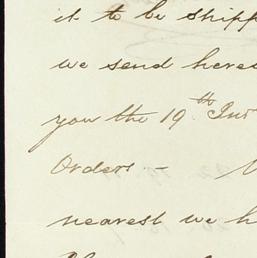 it to be shipp
we send here
you the 19th Ins
Orders -
nearest we h